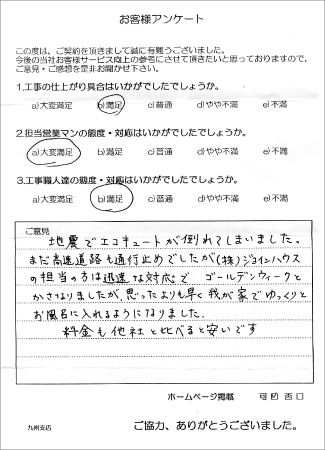 お客様アンケート
この度は、ご契約を頂きまして誠に有難うございました。
今後の当社お客様サービス向上の参考にさせて頂きたいと思っておりますので、
ご意見・ご感想を是非お聞かせ下さい。
1.工事の仕上がり具合はいかがでしたでしょうか。
a)大変満足 b)満足 c)普通 d)やや不満 e)不満
2.担当営業マンの態度・対応はいかがでしたでしょうか。
a)大変満足 b)満足 c)普通 d)やや不満 e)不満
3.工事職人達の態度・対応はいかがでしたでしょうか。
a)大変満足 b)満足 c)普通 d)やや不満 e)不満
ご意見
地震でエコキュートが倒れてしまいました。
まだ高速道路も通行止めでしたが(株)ジョインハウス
の担当の方は迅速な対応で ゴールデンウィークと
かさなりましたが、思ったよりも早く我が家でゆっくりと
お風呂に入れるようになりました。
料金も他社と比べると安いです
ホームページ掲載 可☑ 否□
九州支店
ご協力、ありがとうございました。